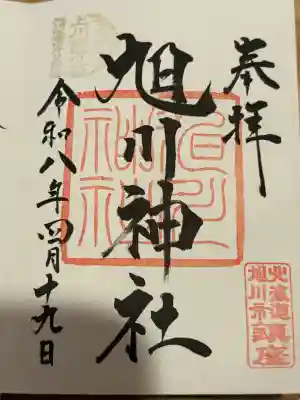 奉拝
旭川神社
令和八年四月十九日
旭川神社
北海道
旭川市